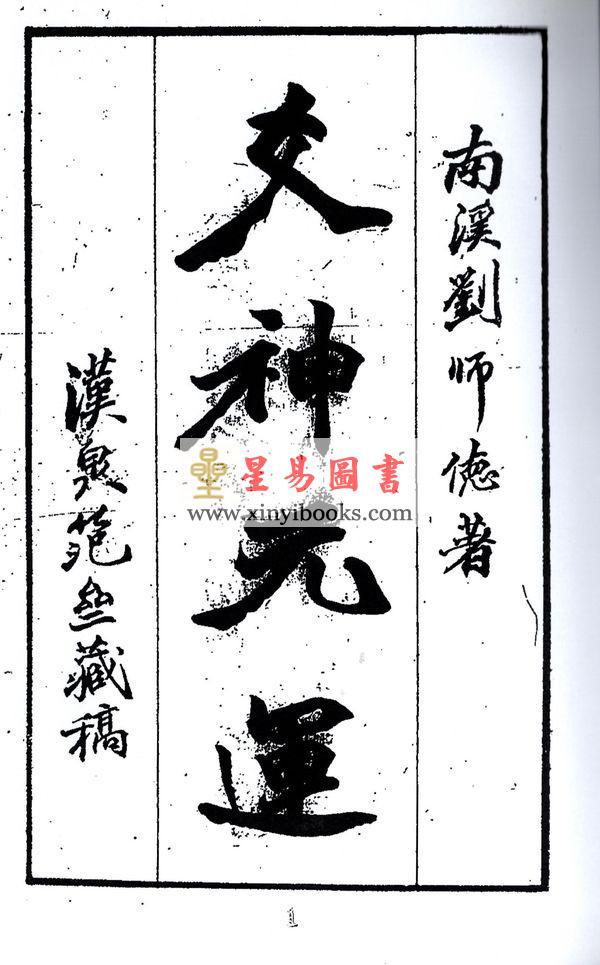 南溪劉師德著
神元運
漢藏稿
星易圖書
www.xinyibooks.com
1